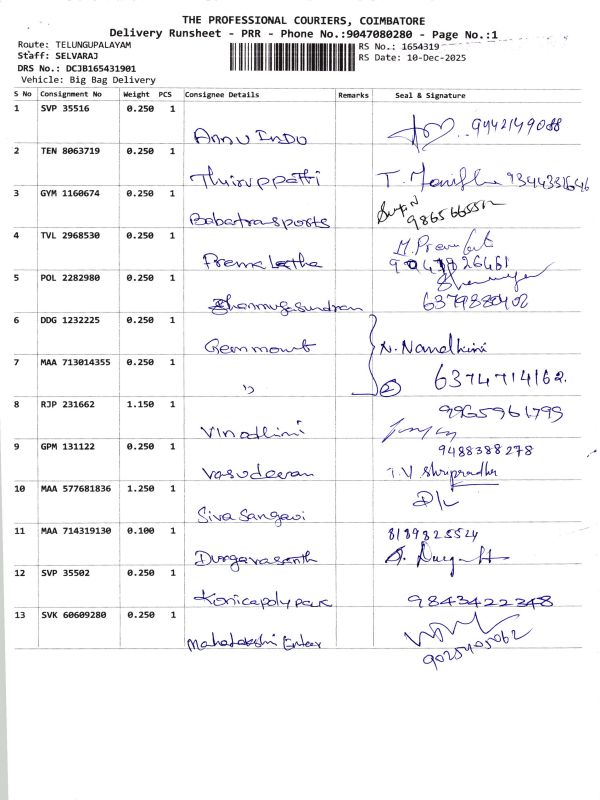 THE PROFESSIONAL COURIERS, COIMBATORE
Delivery Runsheet - PRR - Phone No.:9047080280 - Page No.:1
Route: TELUNGUPALAYAM
Staff: SELVARAJ
DRS No.: DCJB165431901
Vehicle: Big Bag Delivery
RS No.: 1654319
RS Date: 10-Dec-2025
S No Consignment No Weight PCS Consignee Details Remarks Seal & Signature
1 SVP 35516 0.250 1
Annu Indu 9442149088
2 TEN 8063719 0.250 1
Thiruppathi T. 9344331646
3 GYM 1160674 0.250 1
Babatrasports 9865665512
4 TVL 2968530 0.250 1
Premalatha
5 POL 2282980 0.250 1
Shanmugasundram 6379880402
6 DDG 1232225 0.250 1
Gemmount N. Nandhini
7 MAA 713014355 0.250 1
" 2 6374714162.
8 RJP 231662 1.150 1
Vinodhini 9965961799
9 GPM 131122 0.250 1
9488388278
Vasudevan T.V
10 MAA 577681836 1.250 1
Siva Sangavi D/L
11 MAA 714319130 0.100 1
8189825524
Durgavasanth
12 SVP 35502 0.250 1
Konicapolypack 9843422348
13 SVK 60609280 0.250 1
Mahalakshi Enter 9025405062